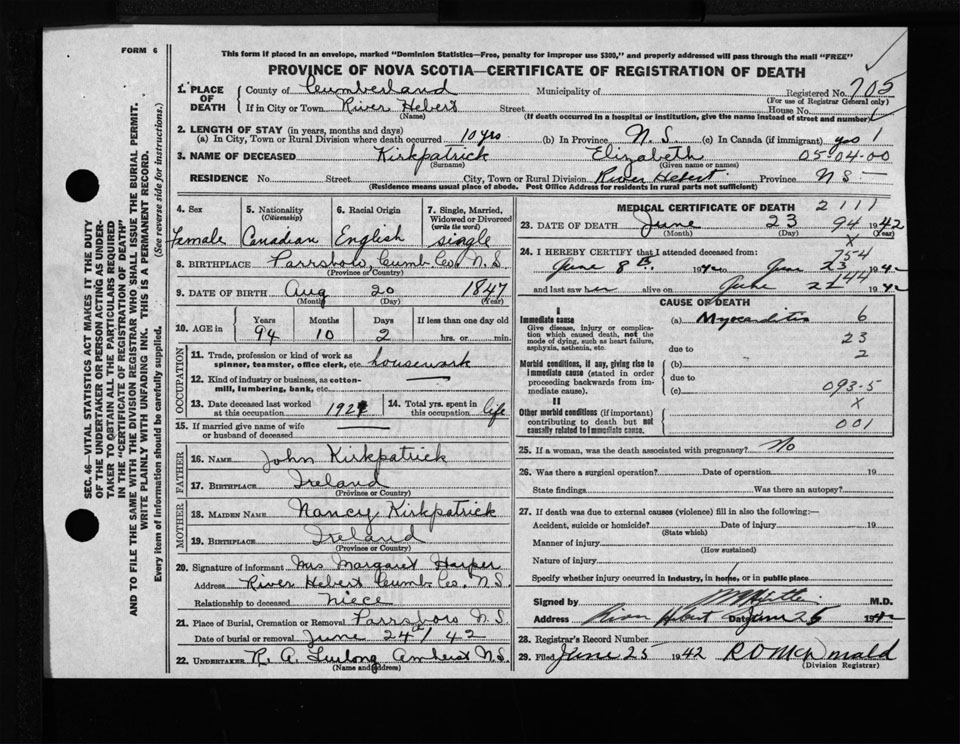 FORM 6
This form if placed in an envelope, marked "Dominion Statistics—Free, penalty for improper use $300," and properly addressed will pass through the mail "FREE"
PROVINCE OF NOVA SCOTIA—CERTIFICATE OF REGISTRATION OF DEATH
SEC. 46—VITAL STATISTICS ACT MAKES IT THE DUTY
OF THE UNDERTAKER OR PERSON ACTING AS UNDER-
TAKER TO OBTAIN ALL THE PARTICULARS REQUIRED
IN THE "CERTIFICATE OF REGISTRATION OF DEATH"
AND TO FILE THE SAME WITH THE DIVISION REGISTRAR WHO SHALL ISSUE THE BURIAL PERMIT.
WRITE PLAINLY WITH UNFADING INK. THIS IS A PERMANENT RECORD.
Every item of information should be carefully supplied. (See reverse side for instructions.)
1. PLACE OF DEATH
County of Cumberland Municipality of Registered No. 705
(For use of Registrar General only)
If in City or Town River Hebert Street House No.
(Name) (If death occurred in a hospital or institution, give the name instead of street and number)
2. LENGTH OF STAY (in years, months and days)
(a) In City, Town or Rural Division where death occurred 10 yrs (b) In Province N.S. (c) In Canada (if immigrant) yes 1
3. NAME OF DECEASED Kirkpatrick Elizabeth 05-04-00
(Surname) (Given name or names)
RESIDENCE No. Street City, Town or Rural Division River Hebert Province N S
(Residence means usual place of abode. Post Office Address for residents in rural parts not sufficient)
4. Sex female
5. Nationality (Citizenship) Canadian
6. Racial Origin English
7. Single, Married, Widowed or Divorced (write the word) single
8. BIRTHPLACE Parrsboro, Cumb. Co. N.S.
(Province or Country)
9. DATE OF BIRTH Aug 20 1847
(Month) (Day) (Year)
10. AGE in Years Months Days If less than one day old
94 10 2 hrs. or min.
OCCUPATION
11. Trade, profession or kind of work as spinner, teamster, office clerk, etc. housework
12. Kind of industry or business, as cotton-mill, lumbering, bank, etc.
13. Date deceased last worked at this occupation 192
14. Total yrs. spent in this occupation life
15. If married give name of wife or husband of deceased
FATHER
16. NAME John Kirkpatrick
17. BIRTHPLACE Ireland
(Province or Country)
MOTHER
18. MAIDEN NAME Nancy Kirkpatrick
19. BIRTHPLACE Ireland
(Province or Country)
20. Signature of informant Mrs Margaret Harper
Address River Hebert Cumb. Co. N.S.
Relationship to deceased niece
21. Place of Burial, Cremation or Removal Parrsboro N.S.
Date of burial or removal June 24th/42
22. UNDERTAKER R. A. Furlong Amherst N.S.
(Name and address)
MEDICAL CERTIFICATE OF DEATH 2111
23. DATE OF DEATH June 23 94 1942
(Month) (Day) (Year)
X
24. I HEREBY CERTIFY that I attended deceased from: 754
June 8th 1942 to June 23 1942
144
and last saw her alive on June 1942
CAUSE OF DEATH
I
Immediate cause
Give disease, injury or complication which caused death, not the mode of dying, such as heart failure, asphyxia, asthenia, etc.
(a) Myocarditis 6
23
due to
2
Morbid conditions, if any, giving rise to immediate cause (stated in order proceeding backwards from immediate cause).
(b)
due to
(c) 093-5
II
X
Other morbid conditions (if important) contributing to death but not causally related to immediate cause.
001
25. If a woman, was the death associated with pregnancy? No
26. Was there a surgical operation? Date of operation 19
State findings Was there an autopsy?
27. If death was due to external causes (violence) fill in also the following:—
Accident, suicide or homicide? Date of injury 19
(State which)
Manner of injury
(How sustained)
Nature of injury
Specify whether injury occurred in industry, in home, or in public place
Signed by M.D.
Address River Hebert Date June 25 1942
28. Registrar's Record Number
29. Filed June 25 1942 R O McDonald
(Division Registrar)